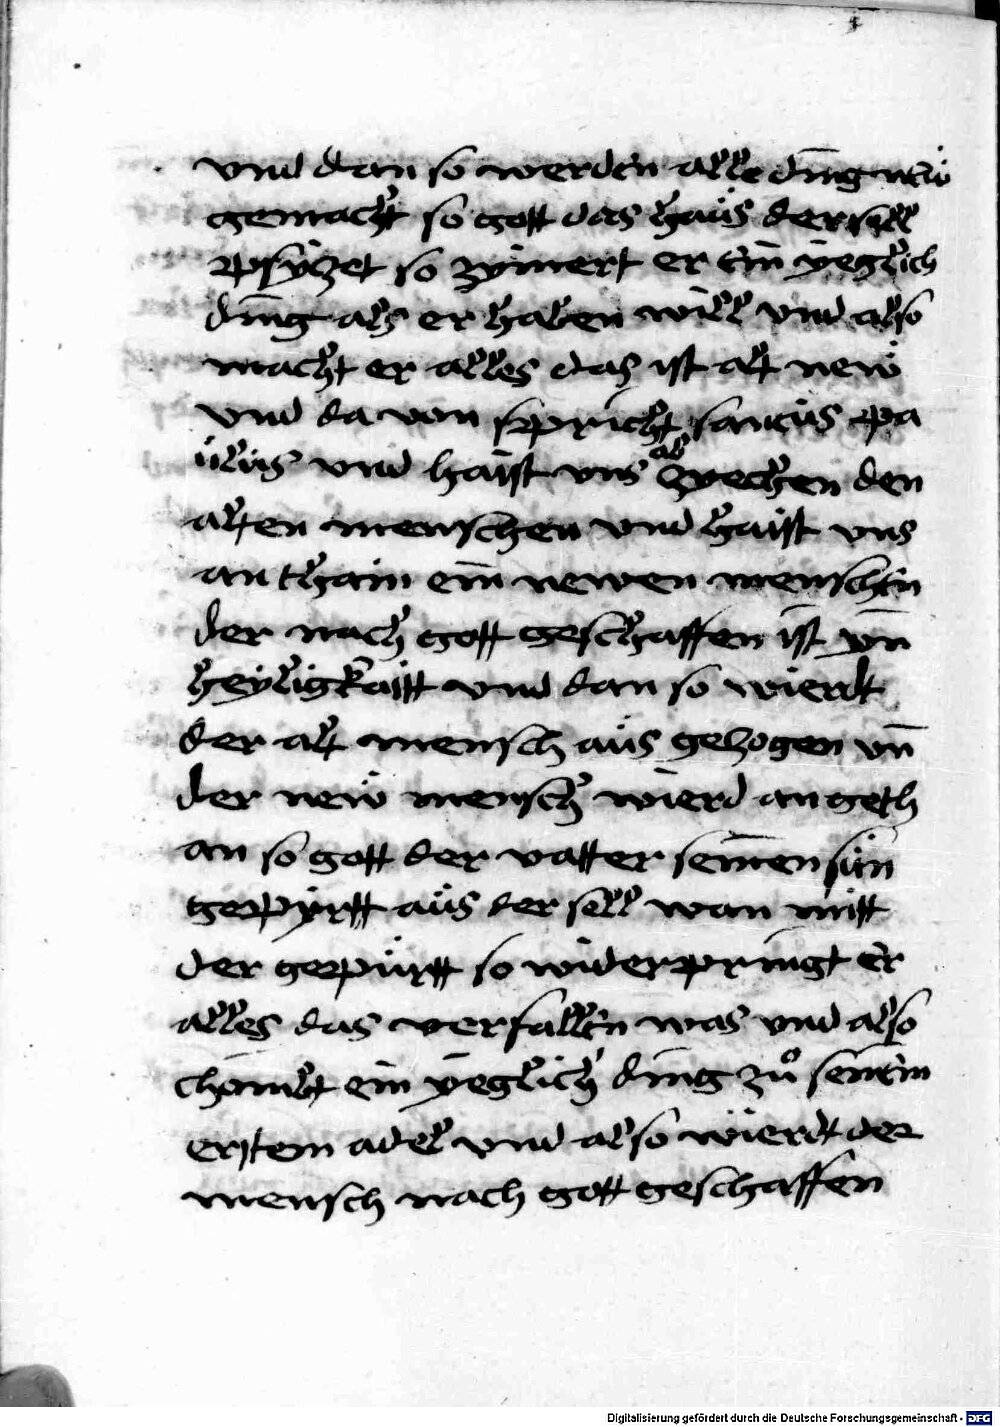 vnd dan so werden alle ding neẅ
gemacht so gott das haüs der sell
psÿzet so zymert er ein yeglich
ding als er haben will vnd also
macht er alles das ist alt neẅ
vnd da von spricht sanctüs pa
ülüs vnd haist vns ab zyechen den
alten menschen vnd haist vns
an thain ein newen menschen
der nach gott geschaffen ist yn
heyligkaitt vnd dan so wierdt
der alt mensch aüs gezogen vn̄
der neẅ mensch wierd an geth
an so gott der vatter seinen sün
gepÿrtt aüs der sell wan mitt
der gepürtt so widerpringt er
alles das verfallen was vnd also
chombt ein yeglich ding zů seinem
erstem adel vnd also wierdt der
mensch nach gott geschaffen
Digitalisierung gefördert durch die Deutsche Forschungsgemeinschaft - DFG